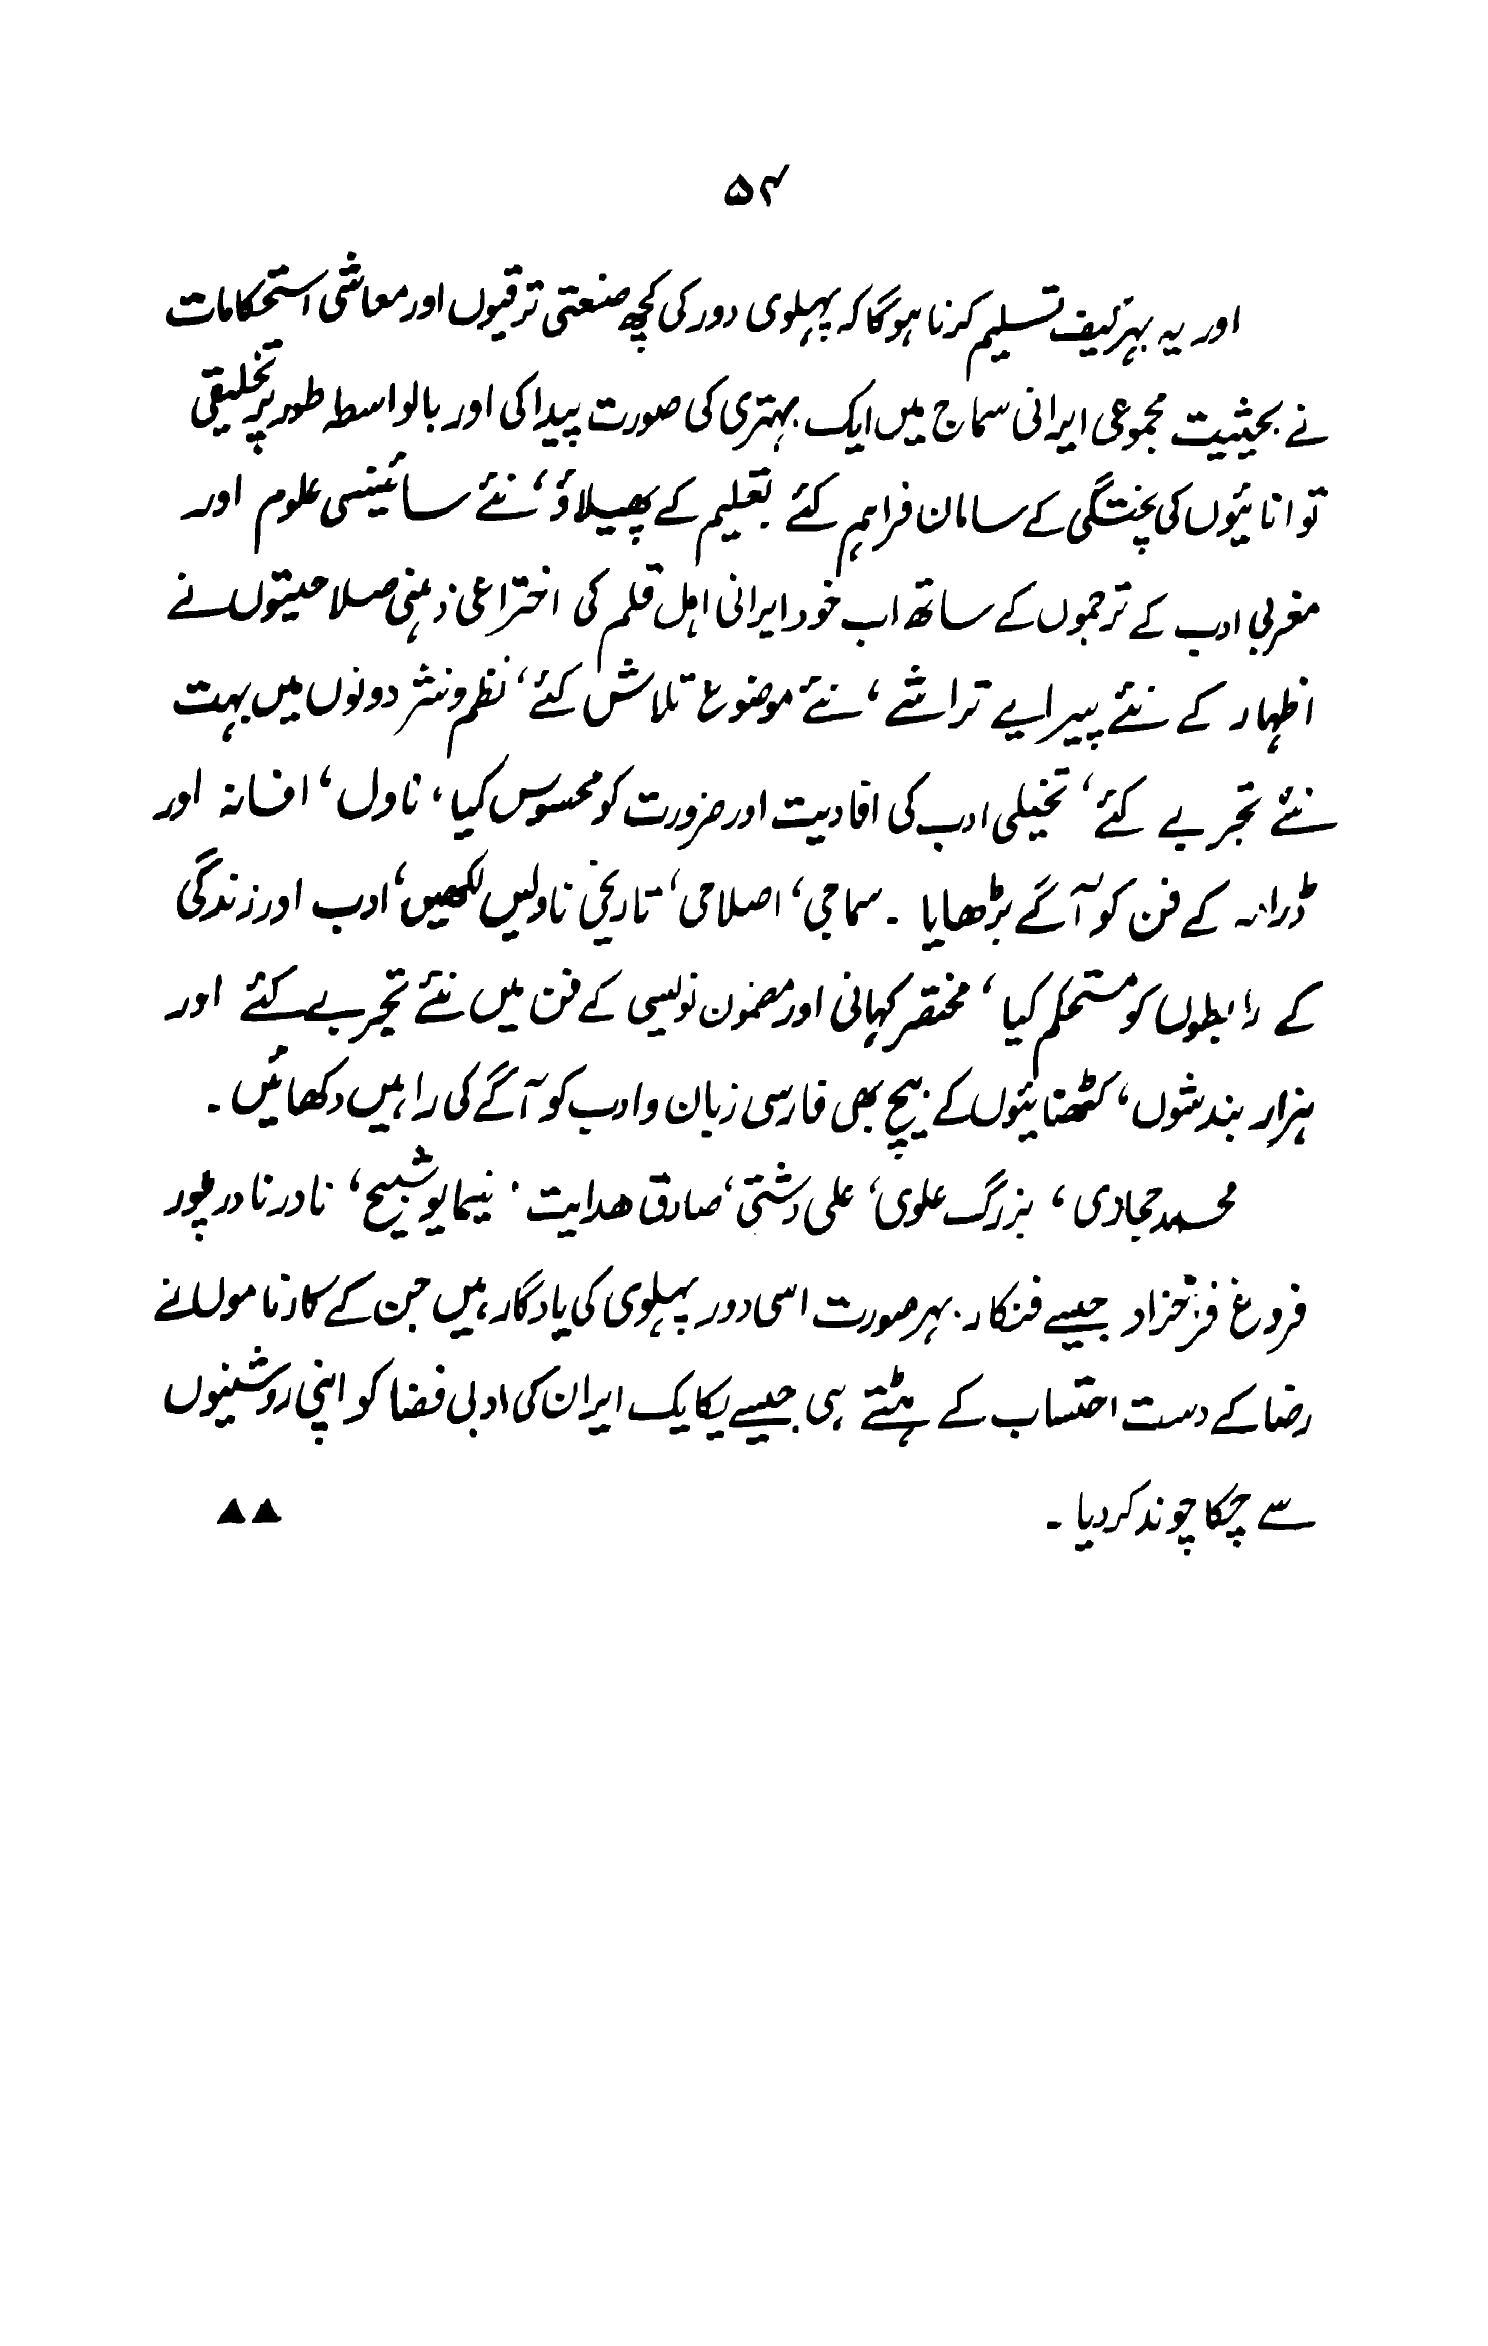 ۵۴
اور یہ بہر کیف تسلیم کرنا ہوگا کہ پہلوی دور کی کچھ صنعتی ترقیوں اور معاشی استحکامات
نے بحیثیت مجموعی ایرانی سماج میں ایک بہتری کی صورت پیدا کی اور بالواسطہ طور پر تخلیقی
توانائیوں کی پختگی کے سامان فراہم کئے تعلیم کے پھیلاؤ، نئے سائینسی علوم اور
مغربی ادب کے ترجموں کے ساتھ اب خود ایرانی اہل قلم کی اختراعی ذہنی صلاحیتوں نے
اظہار کے نئے پیرایے تراشے، نئے موضوع تلاش کئے، نظم و نثر دونوں میں بہت
نئے تجربے کئے، تخیلی ادب کی افادیت اور ضرورت کو محسوس کیا، ناول، افسانہ اور
ڈرامہ کے فن کو آگے بڑھایا ۔ سماجی، اصلاحی، تاریخی ناولیں لکھیں، ادب اور زندگی
کے رابطوں کو مستحکم کیا، مختصر کہانی اور مضمون نویسی کے فن میں نئے تجربے کئے اور
ہزار بندشوں، کٹھنائیوں کے بیچ بھی فارسی زبان و ادب کو آگے کی راہیں دکھائیں ۔
محمد حجازی، بزرگ علوی، علی دشتی، صادق ھدایت، نیما یوشیج، نادر نادرپور
فروغ فرخزاد جیسے فنکار بہر صورت اسی دور پہلوی کی یادگار ہیں جن کے کارناموں نے
رضا کے دست احتساب کے ہٹتے ہی جیسے یکایک ایران کی ادبی فضا کو اپنی روشنیوں
سے چکا چوند کر دیا ۔ ▲▲